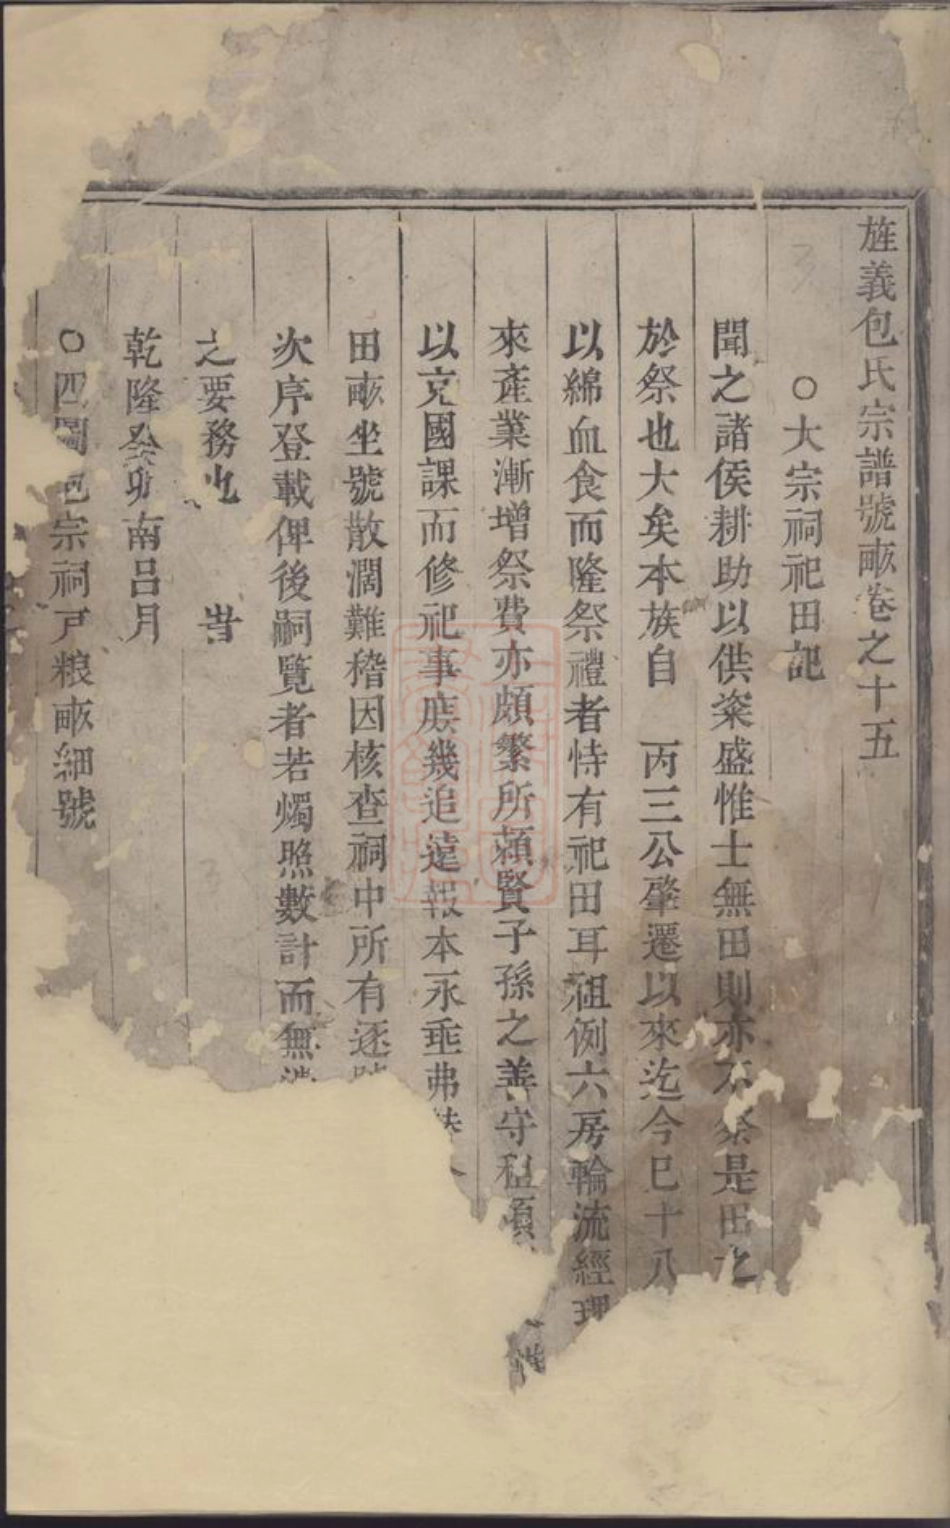 旌義包氏宗譜號畝卷之十五
○大宗祠祀田記
聞之諸侯耕助以供粢盛惟士無田則亦不祭是田之
於祭也大矣本族自　丙三公肇遷以來迄今巳十八
以綿血食而隆祭禮者恃有祀田耳祖例六房輪流經理
來產業漸增祭費亦頗繁所賴賢子孫之善守租
以克國課而修祀事庶幾追遠報本永垂弗
田畝坐號散濶難稽因核查祠中所有逐
次序登載俾後嗣覽者若燭照數計而無
之要務也　　旹
乾隆癸卯南呂月
○四圖包宗祠戸粮畝細號